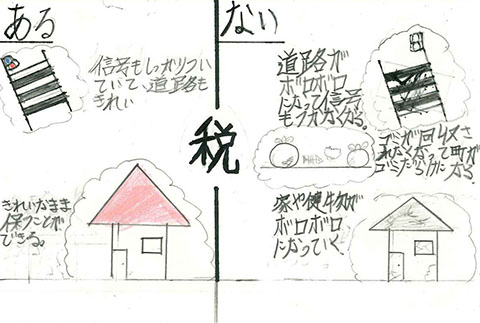 ある
信号もしっかりつい
ていて、道路も
きれい
きれいなまま
保つことが
できる。
税
ない
道路が
ボロボロ
になって信号
もつかなくなる。
ゴミが回収さ
れなくなって町が
ゴミだらけになる。
家や建物が
ボロボロ
になっていく